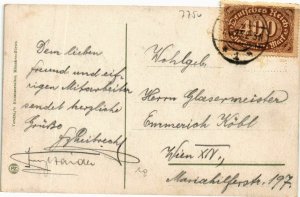 7756
Deutsches Reich
400
Wohlgeb.
Dem lieben
Freund und eif-
rigen Mitarbeiter
sendet herzliche
Grüße
Herrn Glasermeister
Emmerich Köbl
Wien XIV.,
Mariahilferstr. 197.